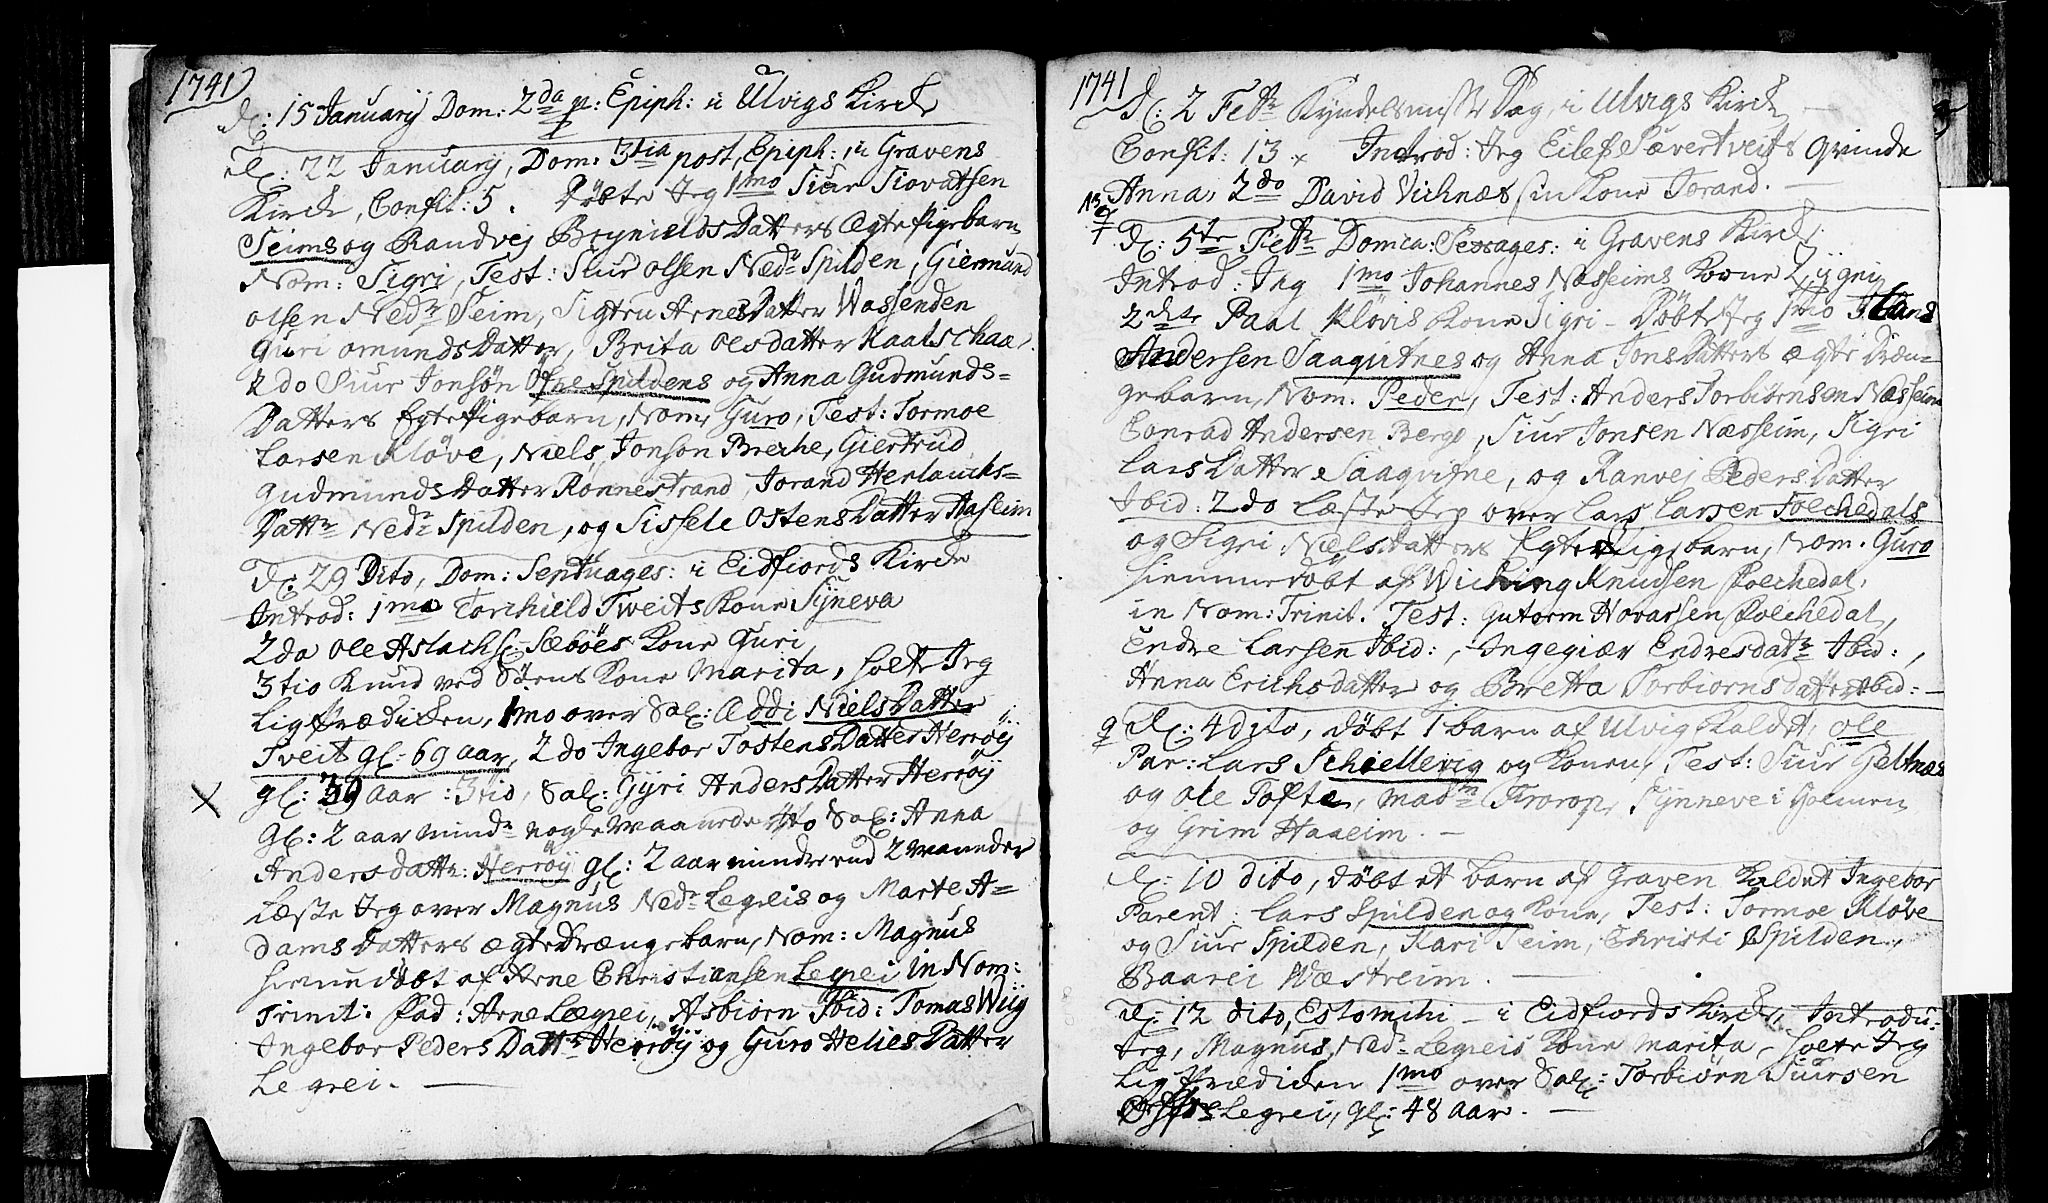 1741
D: 15 January Dom: 2da p: Epiph: i Ulvigs Kirche
D: 22 January, Dom: 3tia post Epiph: i Gravens
Kirche, Confit: 5. Døbte Jeg 1mo Siur Siovatsen
Seims og Randvej Brynields Datters Ægte Pigebarn
Nom: Sigri, Test: Siur Olsen Nedr Spilden, Giermund
olsen Nedr Seim, Sigtru Arnes Datter Wassenden
Guri omunds Datter, Brita Olsdatter Kaalschaar.
2do Siur Jonsøn Øfre Spildens og Anna Gudmunds=
Datters Egte Pigebarn, Nom, Guro, Test: Tormoe
Larsen Kløve, Niels Jonson Breche, Giertrud
Gudmunds Datter Rønnestrand, Torand Herlauchs=
Dattr Nedr Spilden, og Sissele Ostens Datter Haseim
D: 29 Dito, Dom: Septuages: i Eidfiords Kirche
Introd: 1mo Torchield Tweits Kone Syneva
2da Ole Aslachs: Sæbøes Kone Guri
3tio Knud ved Søens Kone Marita, holte Jeg
Ligprædiken, 1mo over Sal: Oddi Niels Datter
Tveit gl: 69 aar, 2do Ingebor Tostens Datter Herrøy
gl: 39 aar :3tio, Sal: Gyri Anders Datter Herrøy
Gl: 2 aar mindr nogle Maaneder 4to Sal: Anna
Anders datr: Herrøy gl: 2 aar mindre end 2 Maaneder
Læste Jeg over Magnus Nedr Legreis og Marte A=
dams Datters ægte Drænge barn, Nom: Magnus
hiemmedøbt af Arne Christiansen Legrei in Nom:
Trinit: Fad: Arne Lægrei, Asbiorn Ibid: Tomas Wiig
Ingebor Peders Dattr Herrøy og Guro Helies Datter
Legrei.
1741
D: 2 Febr Kyndelsmisse Dag, i Ulvigs Kirche
Confit: 13 x Introd: Jeg Eilef Sævertveits Qvinde
Anna, 2do David Vichnæs sin Kone Torand.
D: 5te Febr Domca: Sexages: i Gravens Kirche
Introd: Jeg 1mo Johannes Næsseims Kone
2dte Paal Kløvis Kone Sigri - Døbte Jeg 1mo
Andersen Saaqvitnes og Anna Jons Datters ægte Dræn=
gebarn, Nom. Peder, Test: Anders Torbiørnsen Næsseim
Conrad Andersen Berge, Siur Jonsen Næsseim, Sigri
Lars Datter Saaqvitne, og Ranvej Peders Datter
Ibid: 2do Læste Jeg over Lars Larsen Folchedals
og Sigri Niels Datters Egte Pigebarn, Nom. Guro
hiemmedøbt af Wiching Knudsen Folchedal,
in Nom: Trinit. Test: Gutorm Hovarsen Folchedal,
Endre Larsen Ibid:, Ingegiær Endresdatr Ibid:,
Anna Erichsdatter og Bretta Torbiørns datter Ibid: -
D: 4 dito, døbt 1 barn af Ulvig Kaldet, Ole
Par: Lars Schiellevig og Konen, Test: Siur Geltnæs
og Ole Tofte, Madm Synneve i Holmen
og Grim Haaeim. -
D: 10 dito, døbt et barn af Graven Kaldet Ingebor
Parent: Lars Spilden og Kone, Test: Tormoe Kløve
og Siur Spilden, Kari Seim, Christi Spilden,
Baarei Wæstreim.
D: 12 dito, Estomihi - i Eidfiords Kirche, Introdu:
Jeg, Magnus Nedr Legreis Kone Marita, holte Jeg
Ligprædiken 1mo over Sal: Torbiørn Siursen
Legrei, gl: 48 aar. -